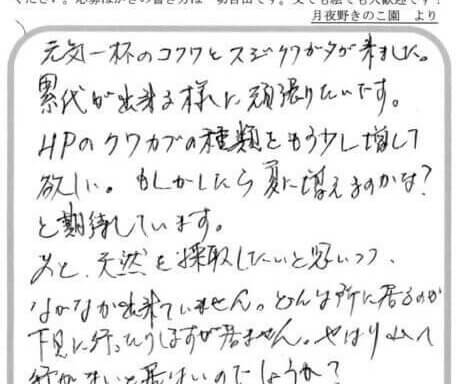 ください。応募はがきの書き方は一切自由です。文でも絵でも大歓迎です！
月夜野きのこ園　より
元気一杯のコクワとスジクワガタが来ました。
累代が出来る様に頑張りたいです。
HPのクワカブの種類をもう少し増して
欲しい。もしかしたら夏に増えるのかな？
と期待しています。
あと、天然を採取したいと思いつつ、
なかなか出来ていません。どんな所に居るのか
下見に行ったりしますが居ません。やはり山へ
行かないと居ないのでしょうか？